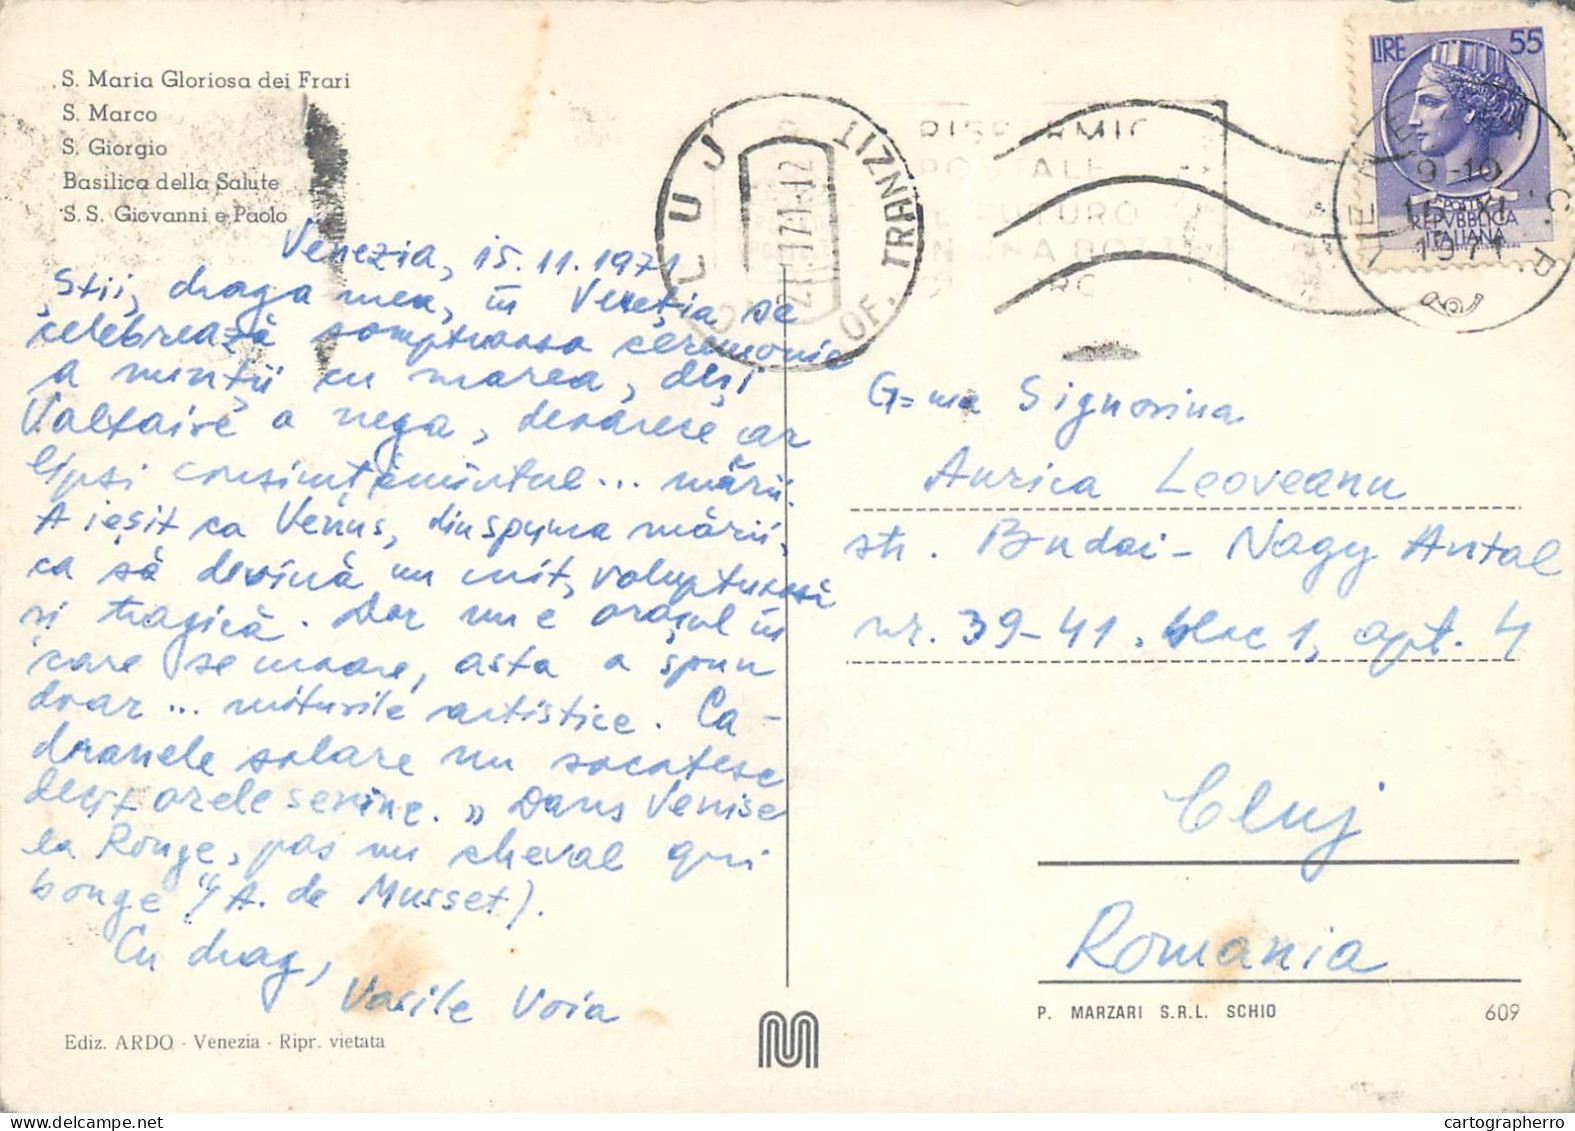 S. Maria Gloriosa dei Frari
S. Marco
S. Giorgio
Basilica della Salute
S.S. Giovanni e Paolo
Venezia, 15.11.1971
Știi, draga mea, în Veneția se
celebrează somptuoasa ceremonie
a nunții cu marea, deși
Voltaire a nega, deoarece iar
lipsi consimțămîntul... mării.
A ieșit ca Venus, din spuma mării,
ca să devină un mit, voluptuoasă
și tragică. Dar nu e orașul în
care se moare, asta a spun
doar... miturile artistice. Ca-
dranele solare nu socotesc
decît orele senine. „Dans Venise
la Rouge, pas un cheval qui
bouge"(A. de Musset).
Cu drag,
Vasile Voia
Ediz. ARDO - Venezia - Ripr. vietata
CLUJ
OF. TRANZIT
21.11.71-12
RISPARMIO
POSTALE
FUTURO
LIRE 55
POSTE
REPVBBLICA
ITALIANA
VENEZIA C.P.
9-10
15.XI
1971
G=ma Signorina
Aurica Leoveanu
str. Budai-Nagy Antal
nr. 39-41, bloc 1, apt. 4
Cluj
Romania
P. MARZARI S.R.L. SCHIO
609
cartographerro